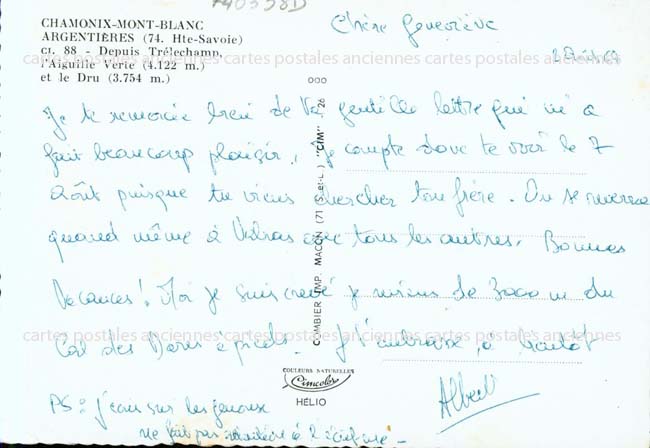 740338D
CHAMONIX-MONT-BLANC
ARGENTIÈRES (74. Hte-Savoie)
CI. 88 - Depuis Trélechamp,
l'Aiguille Verte (4.122 m.)
et le Dru (3.754 m.)
Chère Geneviève
2 Août
Je te remercie bien de ta gentille lettre qui m'a
fait beaucoup plaisir. Je compte donc te voir le 7
Août puisque tu viens chercher ton frère. On se
quand même à avec tous les autres. Bonnes
Vacances! Moi je suis crevé je viens de 3000 m du
Col des à pieds. Je t'embrasse, à bientôt
Albert
PS: j'écris sur les genoux
ne fait pas à l'écriture
COMBIER IMP. MACON (71 (S.-et-L.) "CIM" 26
COULEURS NATURELLES
Cimcolor
HÉLIO
cartes postales anciennes cartes postales anciennes cartes postales anciennes
cartes postales anciennes cartes postales anciennes cartes postales anciennes